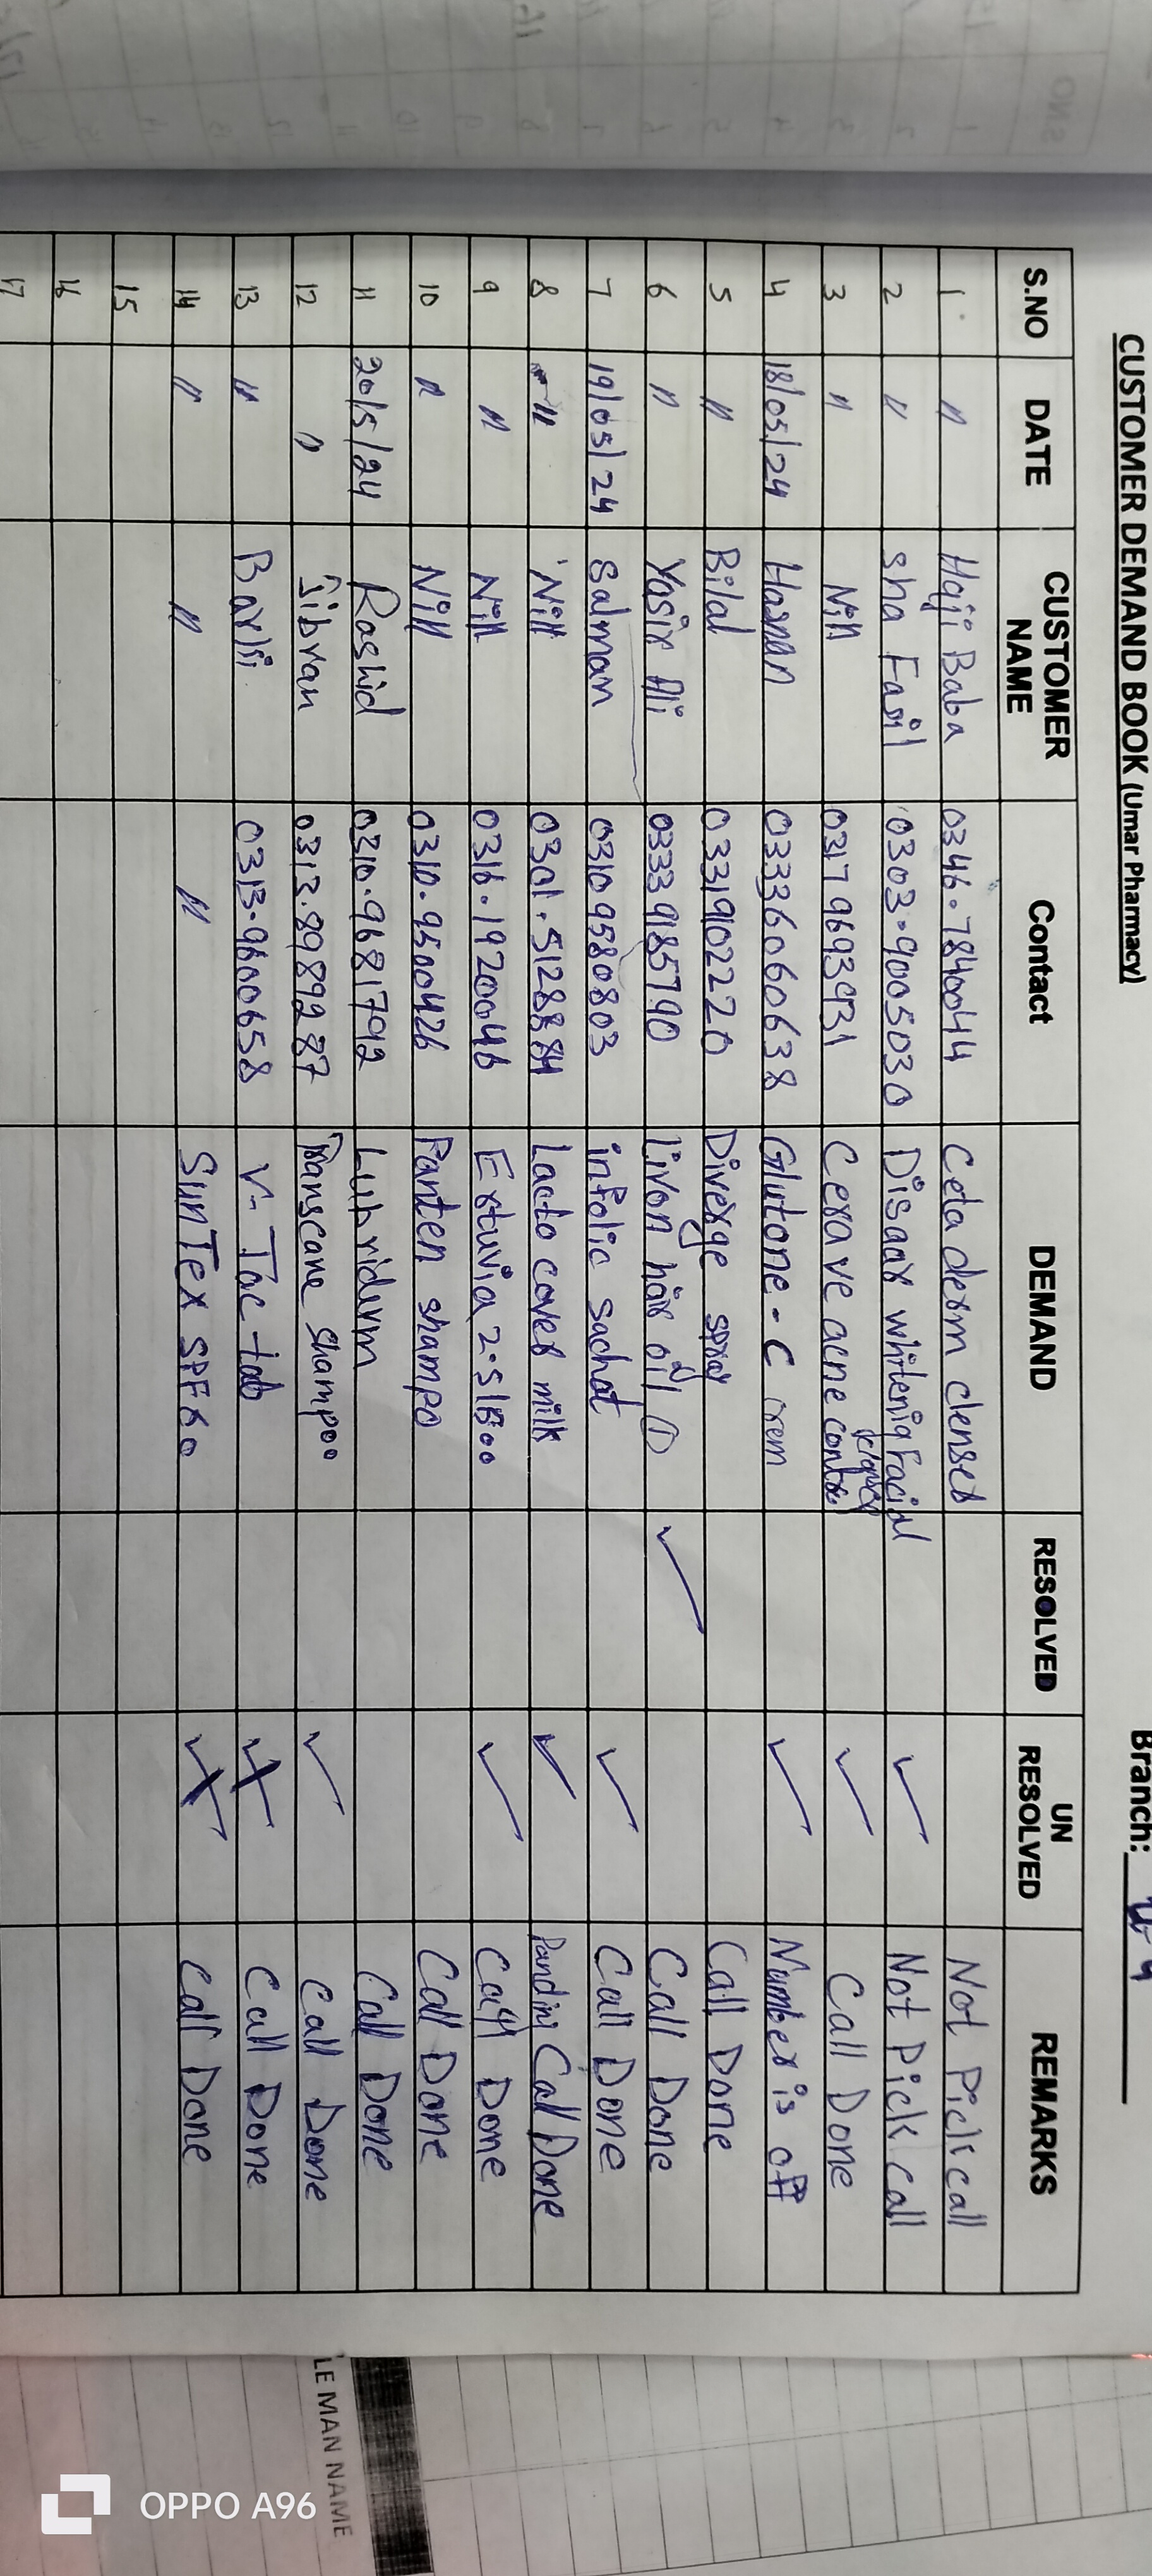 CUSTOMER DEMAND BOOK (Umar Pharmacy)
Branch: U-9
S.NO DATE CUSTOMER NAME Contact DEMAND RESOLVED UN RESOLVED REMARKS
1 " Haji Baba 0346-7840044 Cetaderm clenser Not Pick call
2 " sha Fasil 0303-9005030 Disaar whitenig Facial ✓ Not Pick Call
3 " Nill 03179693931 Cerave acne contro ✓ Call Done
4 18/05/24 Hasnan 03336060638 Glutone-C crem ✓ Number is off
5 " Bilal 03319102220 Diverge spray Call Done
6 " Yasir Ali 03339185790 Livon hair oil (1) ✓ Call Done
7 19/05/24 Salman 03109580803 infolic sachat ✓ Call Done
8 " Nill 0301-5128884 Lacto cover milk ✓ Panding Call Done
9 " Nill 0316-1920046 Extuvia 2.5/500 ✓ Call Done
10 " Nill 0310-9500426 Panten shampo Call Done
11 20/5/24 Rashid 0310-9681792 Lubriderm Call Done
12 " Jibran 0313-8989287 Transcane shampoo ✓ Call Done
13 " 0313-9600658 V-Tac tab Call Done
14 " " " SunTex SPF 60 Call Done
15
16
17
LE MAN NAME
OPPO A96